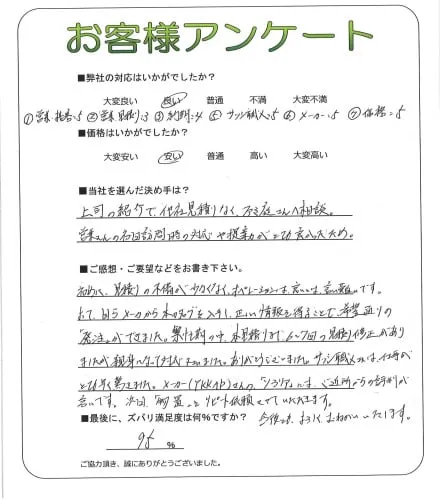 お客様アンケート
■弊社の対応はいかがでしたか？
大変良い 良い 普通 不満 大変不満
①営業 ②営業 見積り=3 ⑤サッシ職人=5 ⑥メーカー=5 ⑦価格=5
■価格はいかがでしたか？
大変安い 安い 普通 高い 大変高い
■当社を選んだ決め手は？
上司の紹介で、他社見積りなく、さんへ相談。
営業さんの初回訪問時の対応や提案力がとても良かったため。
■ご感想・ご要望などをお書き下さい。
初めに、見積りの不備が少なくなく、オペレーションは良いとは言い難いです。
自らメーカーからカタログを入手し、正しい情報を得ることで、希望通りの
「発注」ができました。の中、本見積りまで6〜7回の見積り修正があり
ましたが親身になって対応ありがとうございました。サッシ職人さんは、仕事が
とても早く驚きました。メーカー(YKKAP)さんの「シ」は、ご近所からの評判が
良いです。次回、にリピート依頼させていただきます。
■最後に、ズバリ満足度は何％ですか？ 今後とも、よろしくおねがいいたします。
95 ％
ご協力頂き、誠にありがとうございました。